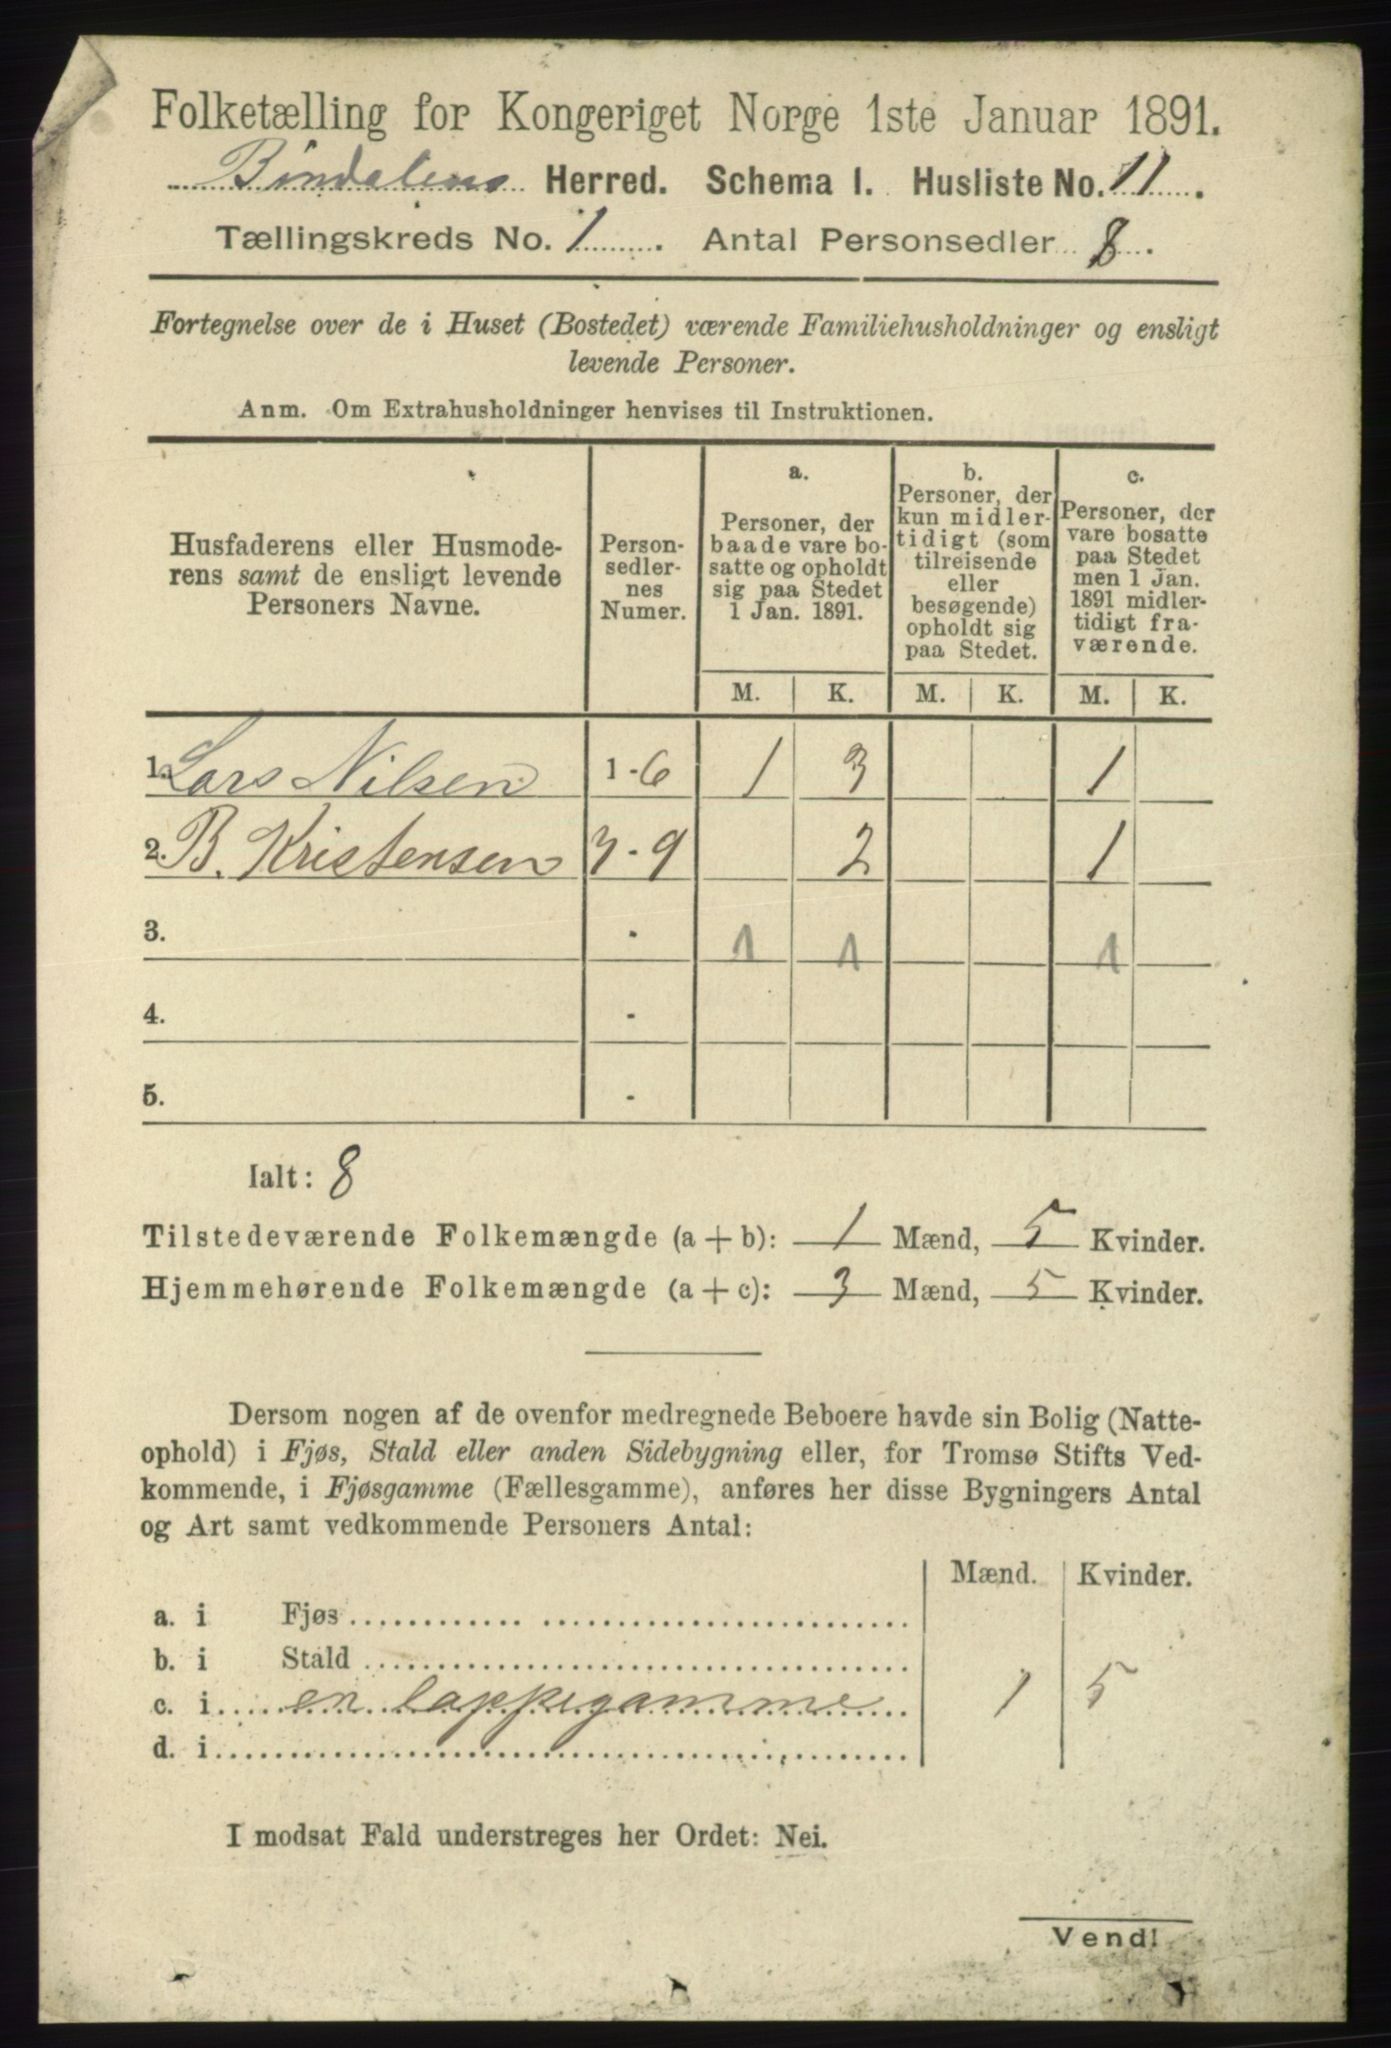 Folketælling for Kongeriget Norge 1ste Januar 1891.
Bindalens Herred. Schema I. Husliste No. 11.
Tællingskreds No. 1. Antal Personsedler 8.
Fortegnelse over de i Huset (Bostedet) værende Familiehusholdninger og ensligt
levende Personer.
Anm. Om Extrahusholdninger henvises til Instruktionen.
Husfaderens eller Husmode-
rens samt de ensligt levende
Personers Navne.
Person-
sedler-
nes
Numer.
a.
Personer, der
baade vare bo-
satte og opholdt
sig paa Stedet
1 Jan. 1891.
b.
Personer, der
kun midler-
tidigt (som
tilreisende
eller
besøgende)
opholdt sig
paa Stedet.
c.
Personer, der
vare bosatte
paa Stedet
men 1 Jan.
1891 midler-
tidigt fra-
værende.
M. K. M. K. M. K.
1. Lars Nilsen 1-6 1 3 1
2. B. Kristensen 7-9 2 1
3. - 1 1 1
4. -
5. -
Ialt: 8
Tilstedeværende Folkemængde (a + b): 1 Mænd, 5 Kvinder.
Hjemmehørende Folkemængde (a + c): 3 Mænd, 5 Kvinder.
Dersom nogen af de ovenfor medregnede Beboere havde sin Bolig (Natte-
ophold) i Fjøs, Stald eller anden Sidebygning eller, for Tromsø Stifts Ved-
kommende, i Fjøsgamme (Fællesgamme), anføres her disse Bygningers Antal
og Art samt vedkommende Personers Antal:
Mænd. Kvinder.
a. i Fjøs
b. i Stald
c. i en lappegamme 1 5
d. i
I modsat Fald understreges her Ordet: Nei.
Vend!